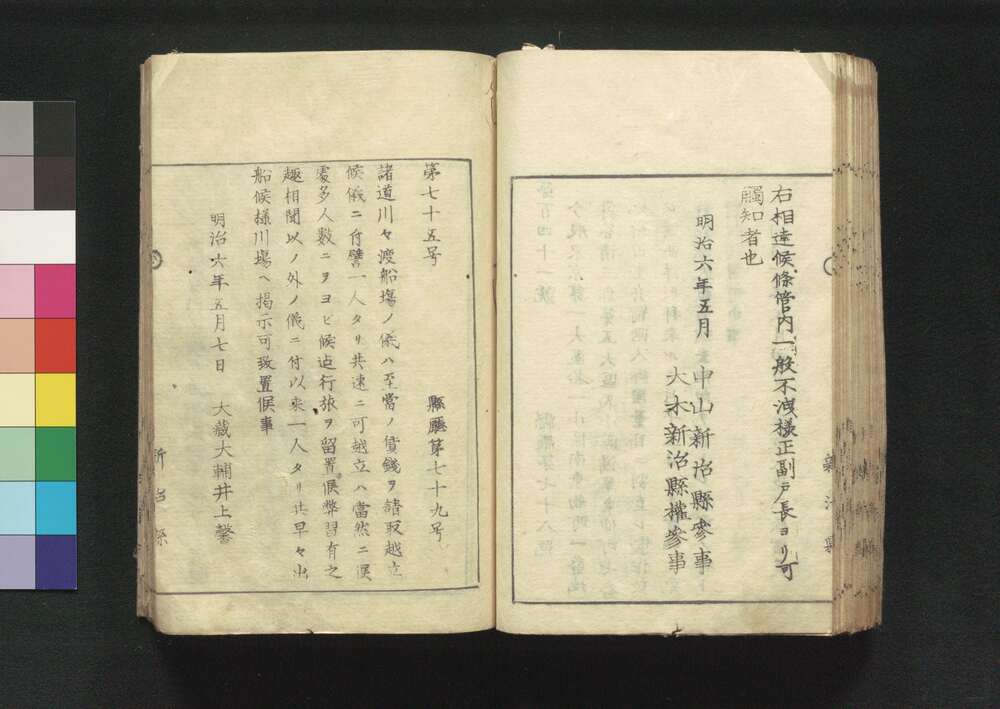 右相達候條管内一般不洩樣正副戸長ヨリ可
觸知者也
明治六年五月 中山新治縣參事
大木新治縣權參事
新治縣
第七十五号
縣廳第七十九号
諸道川々渡船場ノ儀ハ至當ノ賃錢ヲ請取越立
候儀ニ付譬一人タリ共速ニ可越立ハ當然ニ候
處多人數ニヲヨヒ候迠行旅ヲ留置候弊習有之
趣相聞以ノ外ノ儀ニ付以来一人タリ共早々出
船候樣川場ヘ掲示可致置候事
明治六年五月七日 大藏大輔井上馨
新治縣